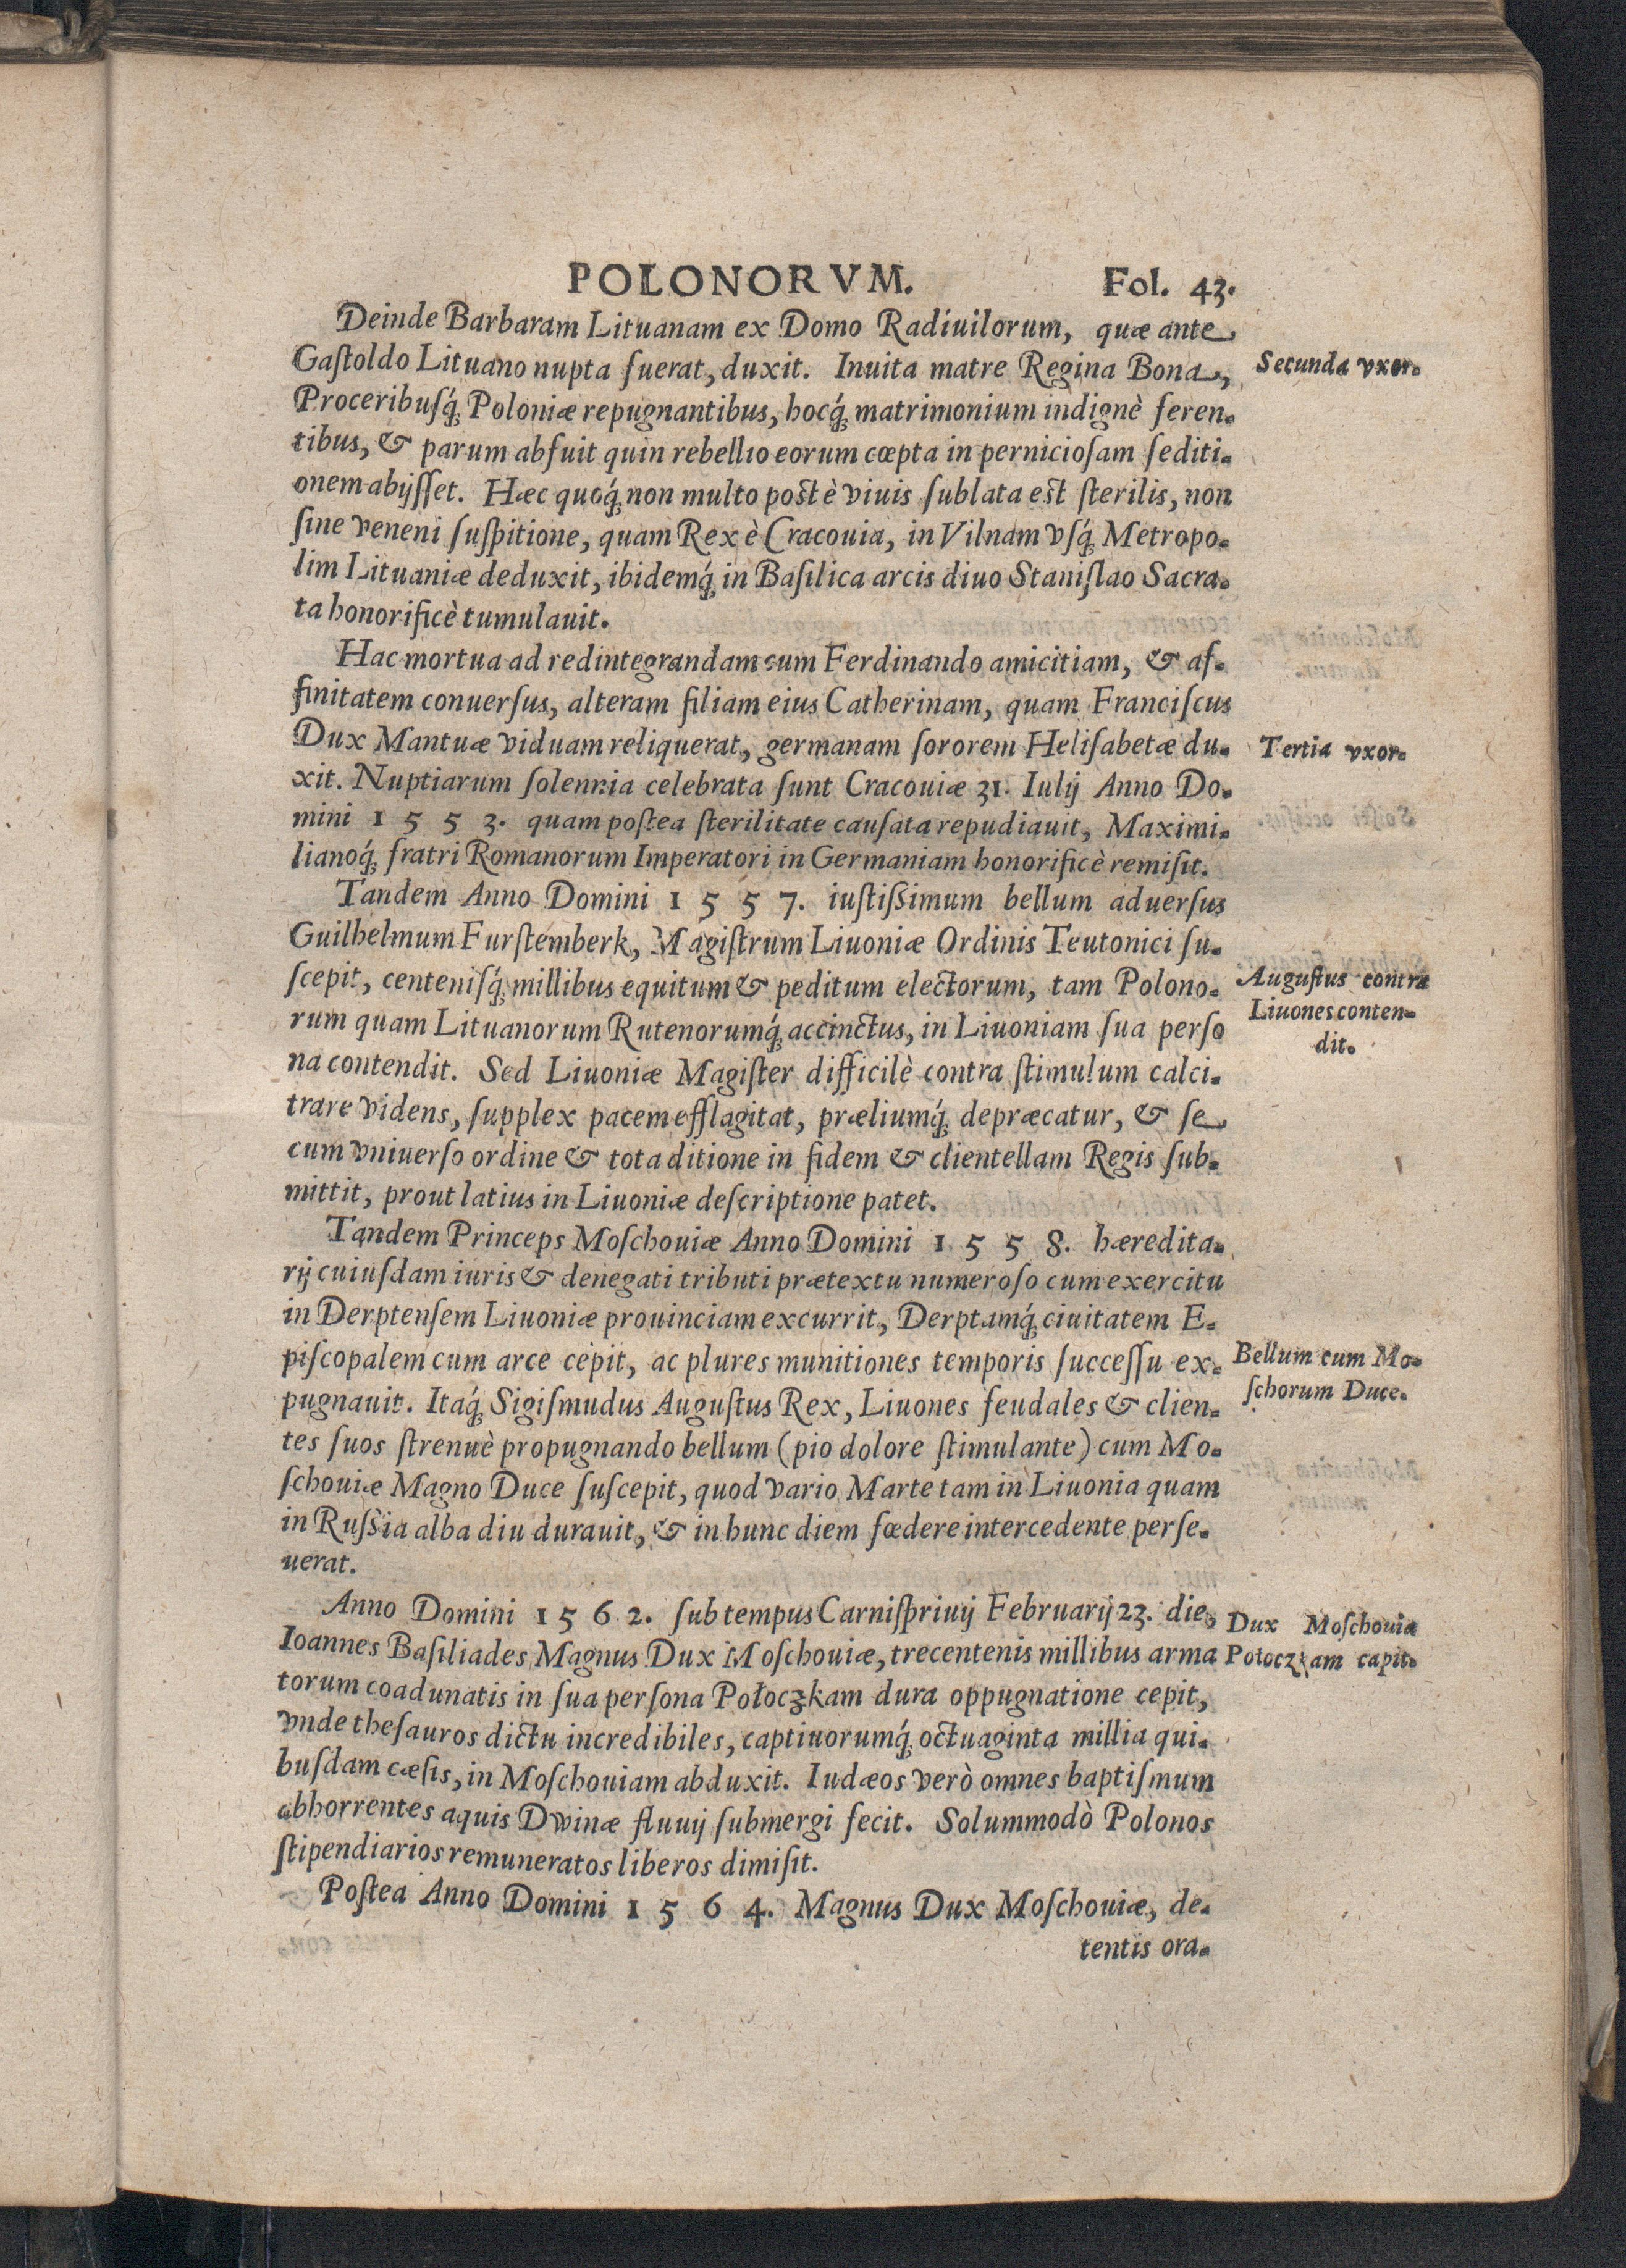 POLONORVM. Fol. 43.
Deinde Barbaram Lituanam ex Domo Radiuilorum, quæ ante
Gaſtoldo Lituano nupta fuerat, duxit. Inuita matre Regina Bona,
Secunda vxor.
Proceribuſq́; Poloniæ repugnantibus, hocq́; matrimonium indignè feren-
tibus, & parum abfuit quin rebellio eorum cœpta in pernicioſam ſediti-
onem abijſſet. Hæc quoq́; non multo post è viuis ſublata est ſterilis, non
ſine veneni ſuſpitione, quam Rex è Cracouia, in Vilnam vſq́; Metropo-
lim Lituaniæ deduxit, ibidemq́; in Baſilica arcis diuo Staniſlao Sacra-
ta honorificè tumulauit.
Hac mortua ad redintegrandam cum Ferdinando amicitiam, & af-
finitatem conuerſus, alteram filiam eius Catherinam, quam Franciſcus
Dux Mantuæ viduam reliquerat, germanam ſororem Heliſabetæ du-
Tertia vxor.
xit. Nuptiarum ſolennia celebrata ſunt Cracouiæ 31. Iulij Anno Do-
mini 1 5 5 3. quam poſtea ſterilitate cauſata repudiauit, Maximi-
lianoq́; fratri Romanorum Imperatori in Germaniam honorificè remiſit.
Tandem Anno Domini 1 5 5 7. iuſtiſsimum bellum aduerſus
Guilhelmum Furſtemberk, Magiſtrum Liuoniæ Ordinis Teutonici ſu-
ſcepit, centeniſq́; millibus equitum & peditum electorum, tam Polono-
rum quam Lituanorum Rutenorumq́; accinctus, in Liuoniam ſua perſo
na contendit. Sed Liuoniæ Magiſter difficilè contra ſtimulum calci-
Auguſtus contra
Liuones conten-
dit.
trare videns, ſupplex pacem efflagitat, præliumq́; depræcatur, & ſe
cum vniuerſo ordine & tota ditione in fidem & clientellam Regis ſub-
mittit, prout latius in Liuoniæ deſcriptione patet.
Tandem Princeps Moſchouiæ Anno Domini 1 5 5 8. hæredita-
rij cuiuſdam iuris & denegati tributi prætextu numeroſo cum exercitu
in Derptenſem Liuoniæ prouinciam excurrit, Derptamq́; ciuitatem E-
piſcopalem cum arce cepit, ac plures munitiones temporis ſucceſſu ex-
pugnauit. Itaq́; Sigiſmudus Auguſtus Rex, Liuones feudales & clien-
Bellum cum Mo-
ſchorum Duce.
tes ſuos ſtrenuè propugnando bellum (pio dolore ſtimulante) cum Mo-
ſchouiæ Magno Duce ſuſcepit, quod vario Marte tam in Liuonia quam
in Ruſsia alba diu durauit, & in hunc diem fœdere intercedente perſe-
uerat.
Anno Domini 1 5 6 2. ſub tempus Carniſpriuij Februarij 23. die,
Ioannes Baſiliades Magnus Dux Moſchouiæ, trecentenis millibus arma
Dux Moſchouiæ
Połoczkam capit.
torum coadunatis in ſua perſona Połoczkam dura oppugnatione cepit,
vnde theſauros dictu incredibiles, captiuorumq́; octuaginta millia qui-
buſdam cæſis, in Moſchouiam abduxit. Iudæos verò omnes baptiſmum
abhorrentes aquis Dwinæ fluuij ſubmergi fecit. Solummodò Polonos
ſtipendiarios remuneratos liberos dimiſit.
Poſtea Anno Domini 1 5 6 4. Magnus Dux Moſchouiæ, de-
tentis ora-